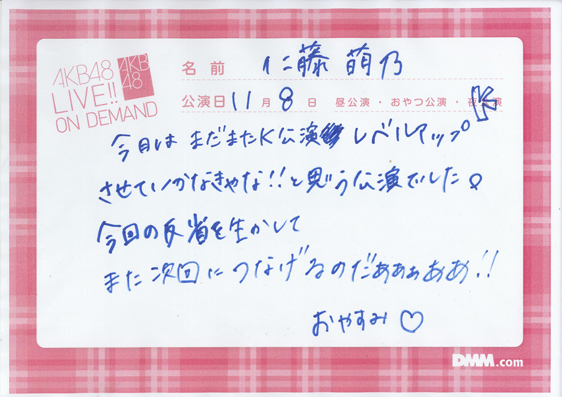 AKB48
LIVE!!
ON DEMAND
AKB
48
名前 仁藤萌乃
公演日 11月8日 昼公演・おやつ公演・夜公演
K
今日は まだまだK公演 レベルアップ
させていかなきゃな!!と思う公演でした
今回の反省を生かして
また次回につなげるのだぁぁぁぁぁ!!
おやすみ♡
DMM.com